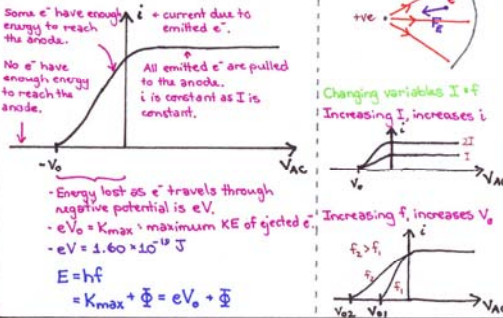 Some e⁻ have enough
energy to reach
the anode.
No e⁻ have
enough energy
to reach the
anode.
i ← current due to
emitted e⁻.
All emitted e⁻ are pulled
to the anode.
i is constant as I is
constant.
-V₀
V_AC
- Energy lost as e⁻ travels through
negative potential is eV.
- eV₀ = Kmax = maximum KE of ejected e⁻
- eV = 1.60 × 10⁻¹⁹ J
E = hf
= Kmax + Φ = eV₀ + Φ
+ve
Changing variables I & f
Increasing I, increases i
i
2I
I
V₀
V_AC
Increasing f, increases V₀
i
f₂ > f₁
f₂
f₁
V₀₂
V₀₁
V_AC